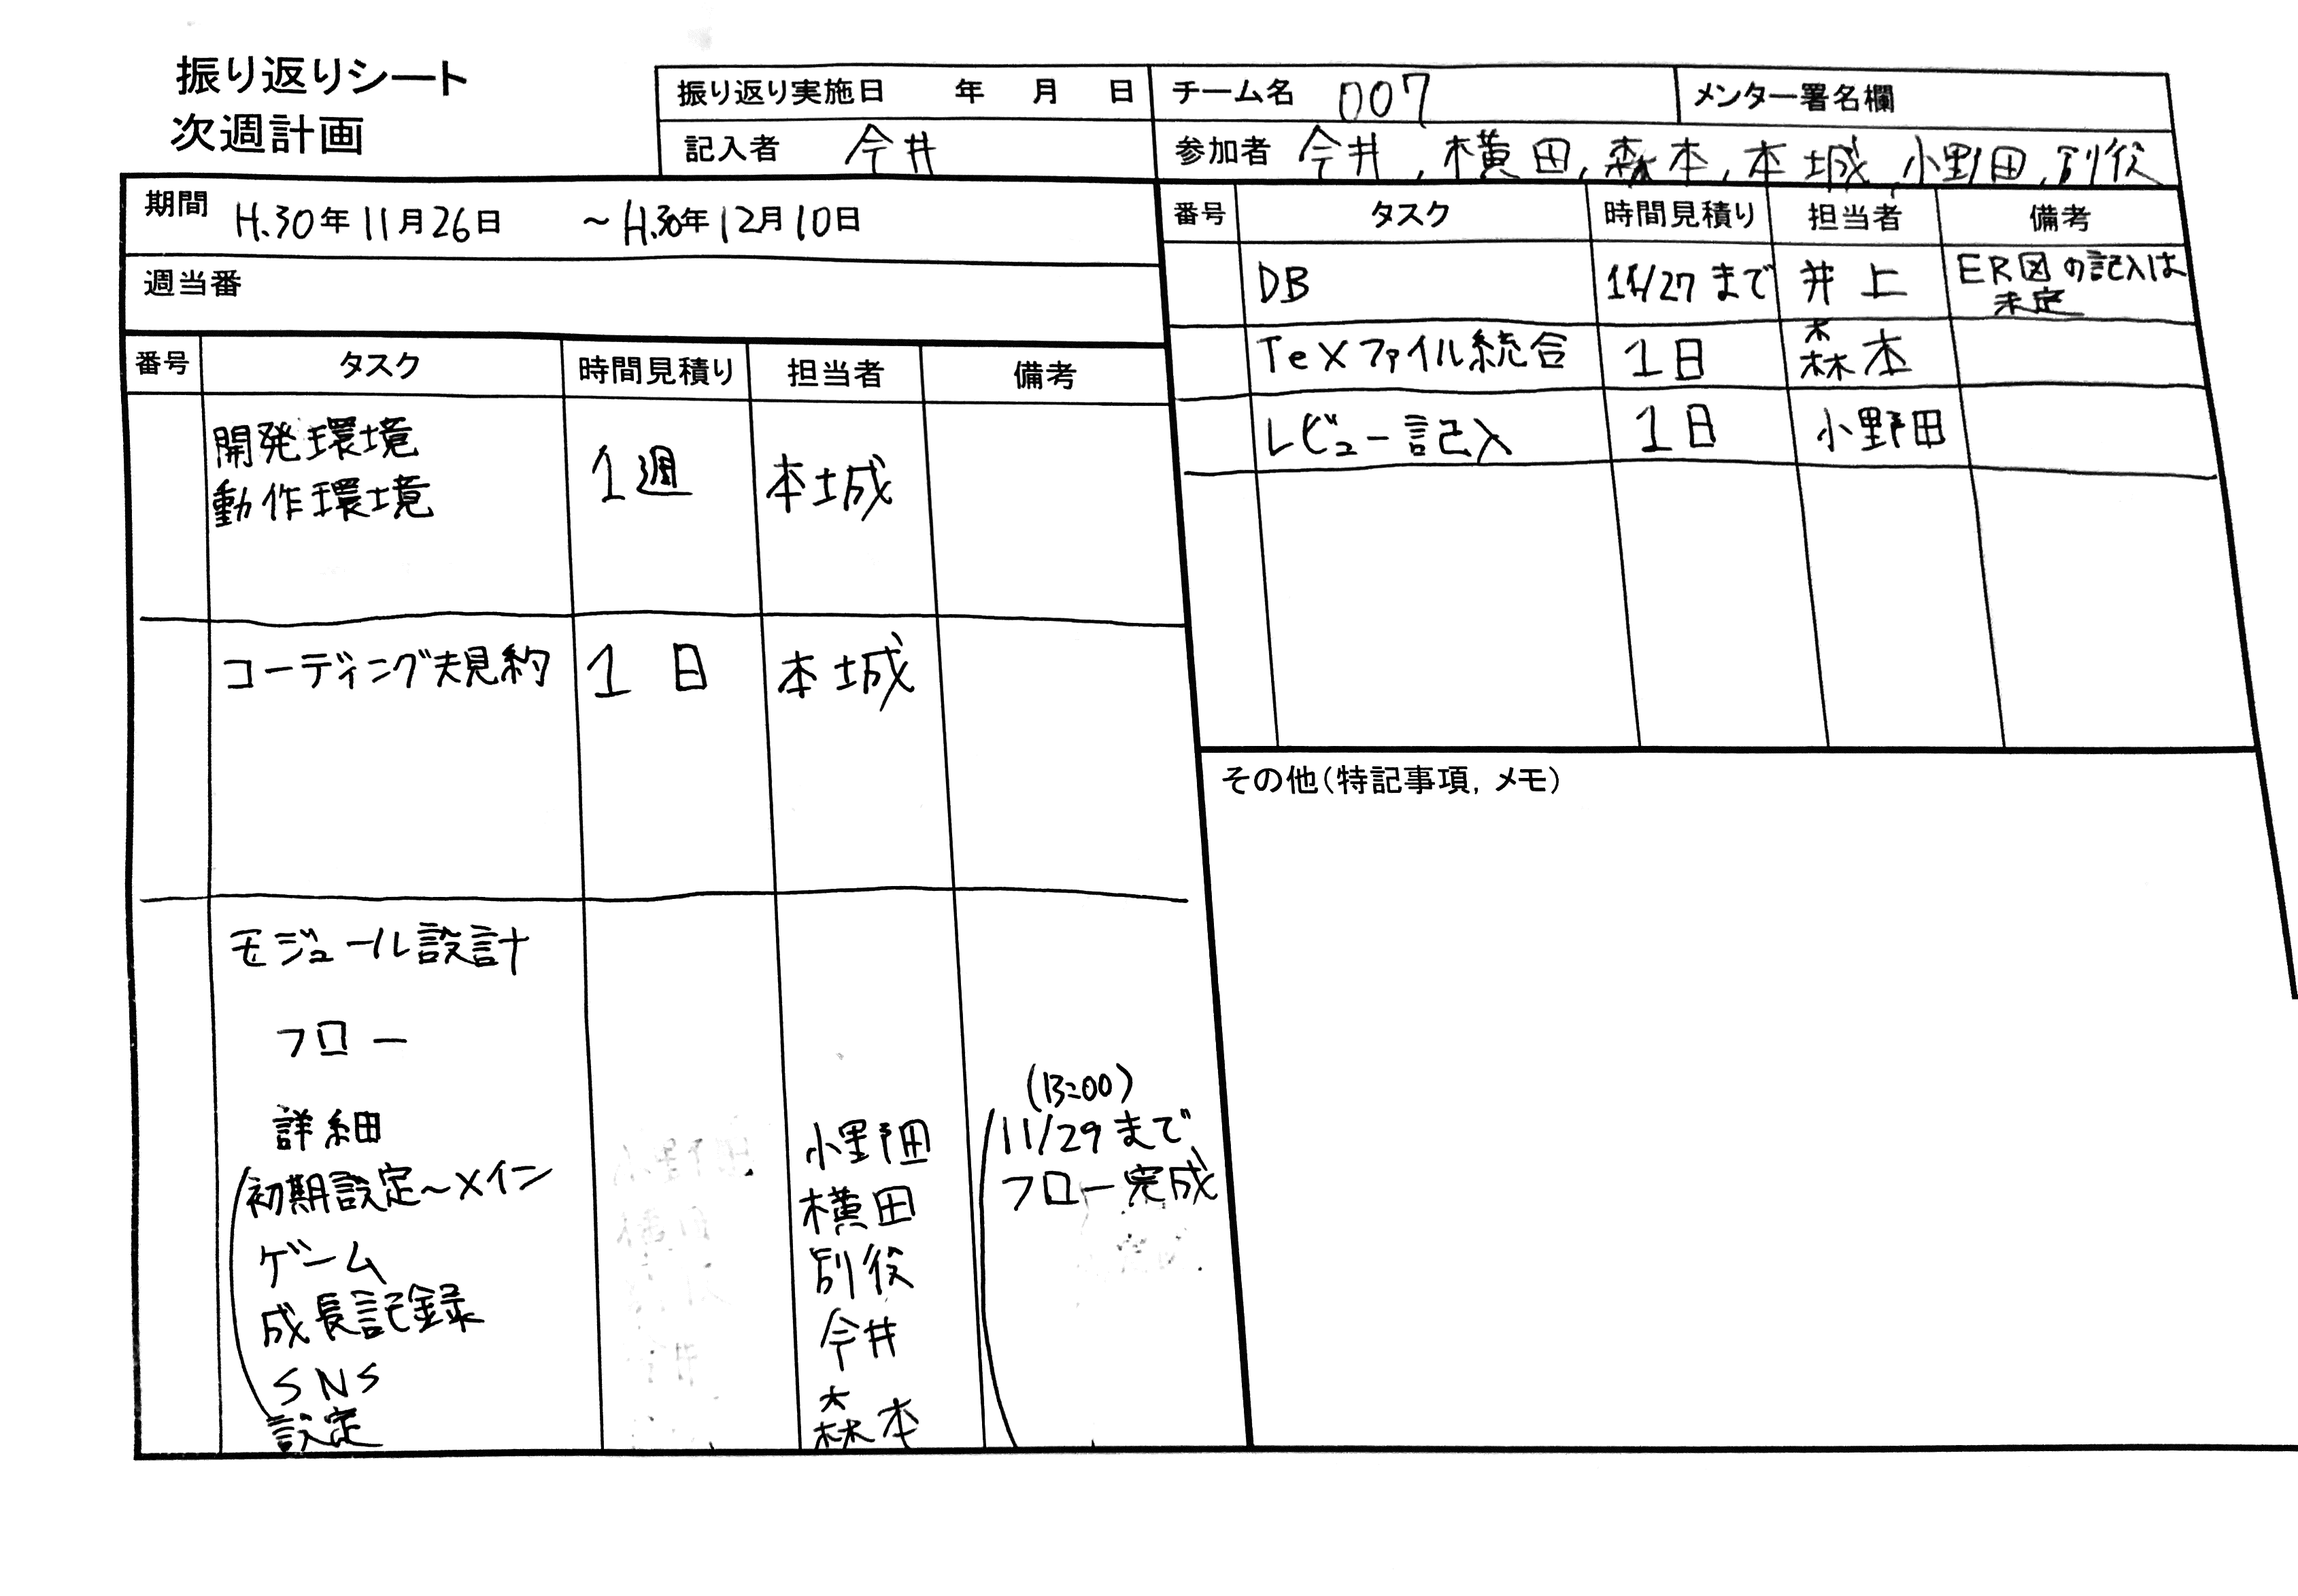 振り返りシート
次週計画
振り返り実施日 年 月 日
チーム名 007
メンター署名欄
記入者 今井
参加者 今井, 横田, 森本, 本城, 小野田, 別役
期間 H.30年11月26日 ～H.30年12月10日
週当番
番号 タスク 時間見積り 担当者 備考
開発環境
動作環境
1週 本城
コーディング規約 1日 本城
モジュール設計
フロー
詳細
初期設定～メイン
ゲーム
成長記録
SNS
設定
小野田
横田
別役
今井
森本
(13:00)
11/29まで
フロー完成
番号 タスク 時間見積り 担当者 備考
DB 11/27まで 井上 ER図の記入は
未定
TeXファイル統合 1日 森本
レビュー記入 1日 小野田
その他(特記事項, メモ)